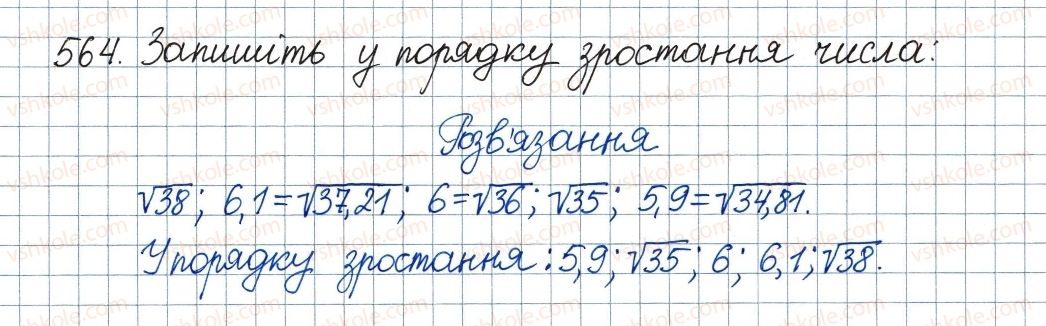 564. Запишіть у порядку зростання числа:
Розв'язання
√38; 6,1=√37,21; 6=√36; √35; 5,9=√34,81.
У порядку зростання: 5,9; √35; 6; 6,1; √38.